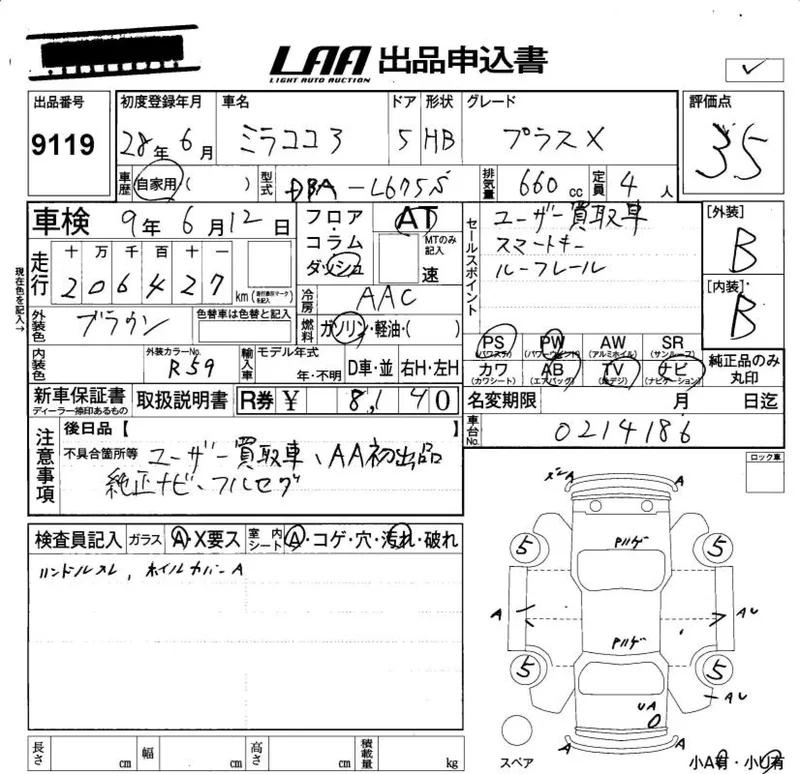 LAA 出品申込書
LIGHT AUTO AUCTION
出品番号 初度登録年月 車名 ドア 形状 グレード 評価点
9119 28年 6月 ミラココア 5 HB プラスX 3.5
車歴 自家用( ) 型式 DBA-L675S 排気量 660cc 定員 4人
車検 9年 6月 12日
フロア・コラム ダッシュ AT MTのみ記入 速
セールスポイント
ユーザー買取車
スマートキー
ルーフレール
[外装]
B
[内装]
B
現在色を記入→
走行 十 万 千 百 十 一
2 0 6 4 2 7 km (走行距離マークを記入)
冷房 AAC
外装色 ブラウン 色替車は色替と記入
燃料 ガソリン・軽油・( )
PS (パワステ) PW (パワーウインド) AW (アルミホイル) SR (サンルーフ)
カワ (カワシート) AB (エアバッグ) TV (地デジ) ナビ (ナビゲーション)
純正品のみ丸印
内装色 外装カラーNo. R59 輸入車 モデル年式 年・不明 D車・並 右H・左H
新車保証書 ディーラー捺印あるもの 取扱説明書 R券 ¥ 8,140
名変期限 月 日迄
車台No. 0214186
注意事項
後日品【 】
不具合箇所等 ユーザー買取車、AA初出品
純正ナビ・フルセグ
ロック車
検査員記入 ガラス A・X要ス 室内シート A・コゲ・穴・汚れ・破れ
ハンドルスレ, ホイルカバーA
ズレA A
Aハゲ
5 5
A AU
Aハゲ
5 5
AU
UA
A A
スペア
小A有・小U有
長さ cm 幅 cm 高さ cm 積載量 kg